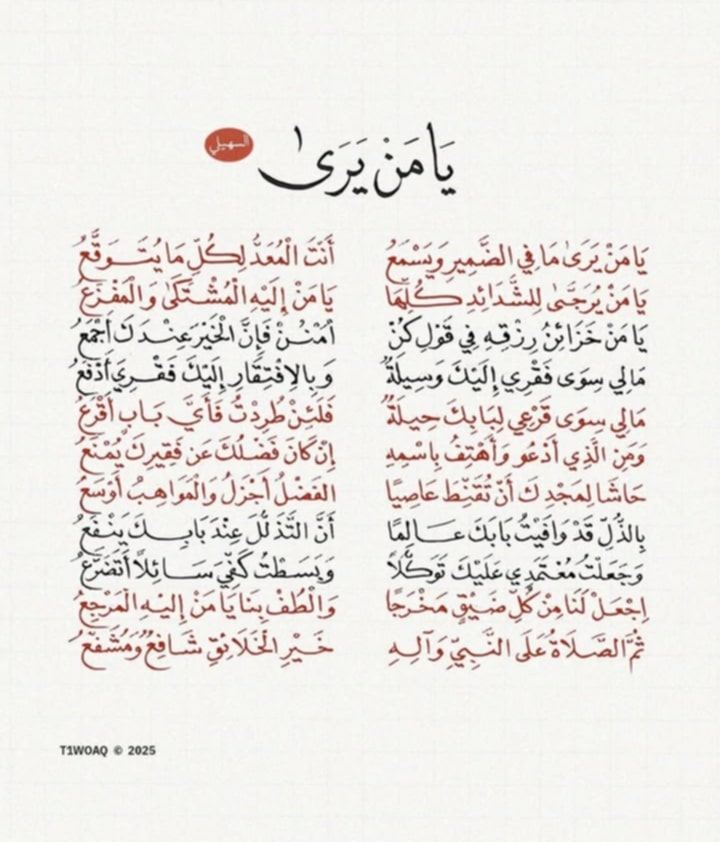 يَا مَنْ يَرَىٰ
السهيلي
يَا مَنْ يَرَىٰ مَا فِي الضَّمِيرِ وَيَسْمَعُ أَنْتَ الْمُعَدُّ لِكُلِّ مَا يُتَوَقَّعُ
يَا مَنْ يُرَجَّىٰ لِلشَّدَائِدِ كُلِّهَا يَا مَنْ إِلَيْهِ الْمُشْتَكَىٰ وَالْمَفْزَعُ
يَا مَنْ خَزَائِنُ رِزْقِهِ فِي قَوْلِ كُنْ اُمْنُنْ فَإِنَّ الْخَيْرَ عِنْدَكَ أَجْمَعُ
مَالِي سِوَى فَقْرِي إِلَيْكَ وَسِيلَةٌ وَبِالِافْتِقَارِ إِلَيْكَ فَقْرِي أَدْفَعُ
مَالِي سِوَى قَرْعِي لِبَابِكَ حِيلَةٌ فَلَئِنْ طُرِدْتُ فَأَيَّ بَابٍ أَقْرَعُ
وَمَنِ الَّذِي أَدْعُو وَأَهْتِفُ بِاسْمِهِ إِنْ كَانَ فَضْلُكَ عَن فَقِيرِكَ يُمْنَعُ
حَاشَا لِمَجْدِكَ أَنْ تُقَنِّطَ عَاصِيًا الفَضْلُ أَجْزَلُ وَالْمَوَاهِبُ أَوْسَعُ
بِالذُّلِّ قَدْ وَافَيْتُ بَابَكَ عَالِمًا أَنَّ التَّذَلُّلَ عِنْدَ بَابِكَ يَنْفَعُ
وَجَعَلْتُ مُعْتَمَدِي عَلَيْكَ تَوَكُّلًا وَبَسَطْتُ كَفِّيَ سَائِلًا أَتَضَرَّعُ
اِجْعَلْ لَنَا مِنْ كُلِّ ضَيْقٍ مَخْرَجًا وَالْطُفْ بِنَا يَا مَنْ إِلَيْهِ الْمَرْجِعُ
ثُمَّ الصَّلَاةُ عَلَى النَّبِيِّ وَآلِهِ خَيْرِ الْخَلَائِقِ شَافِعٌ وَمُشَفَّعُ
T1WOAQ © 2025